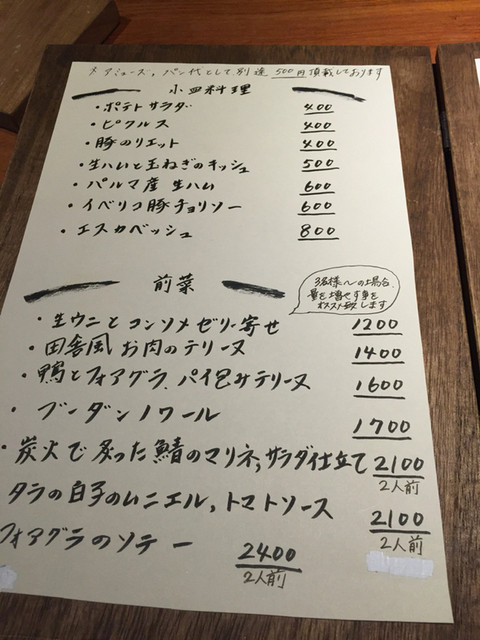 ※アミューズ，パン代として別途500円頂戴しております
小皿料理
・ポテトサラダ 400
・ピクルス 400
・豚のリエット 400
・生ハムと玉ねぎのキッシュ 500
・パルマ産 生ハム 600
・イベリコ豚チョリソー 600
・エスカベッシュ 800
前菜
3名様への場合、
量を増やす事を
オススメ致します
・生ウニとコンソメゼリー寄せ 1200
・田舎風 お肉のテリーヌ 1400
・鴨とフォアグラ、パイ包みテリーヌ 1600
・ブーダンノワール 1700
・炭火で炙った鯖のマリネ，サラダ仕立て 2100
2人前
タラの白子のムニエル，トマトソース 2100
2人前
フォアグラのソテー 2400
2人前